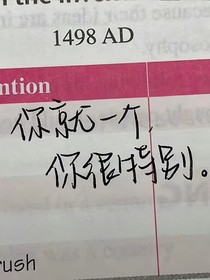 1498 AD
ntion
你就一个,
你很特别。
rush